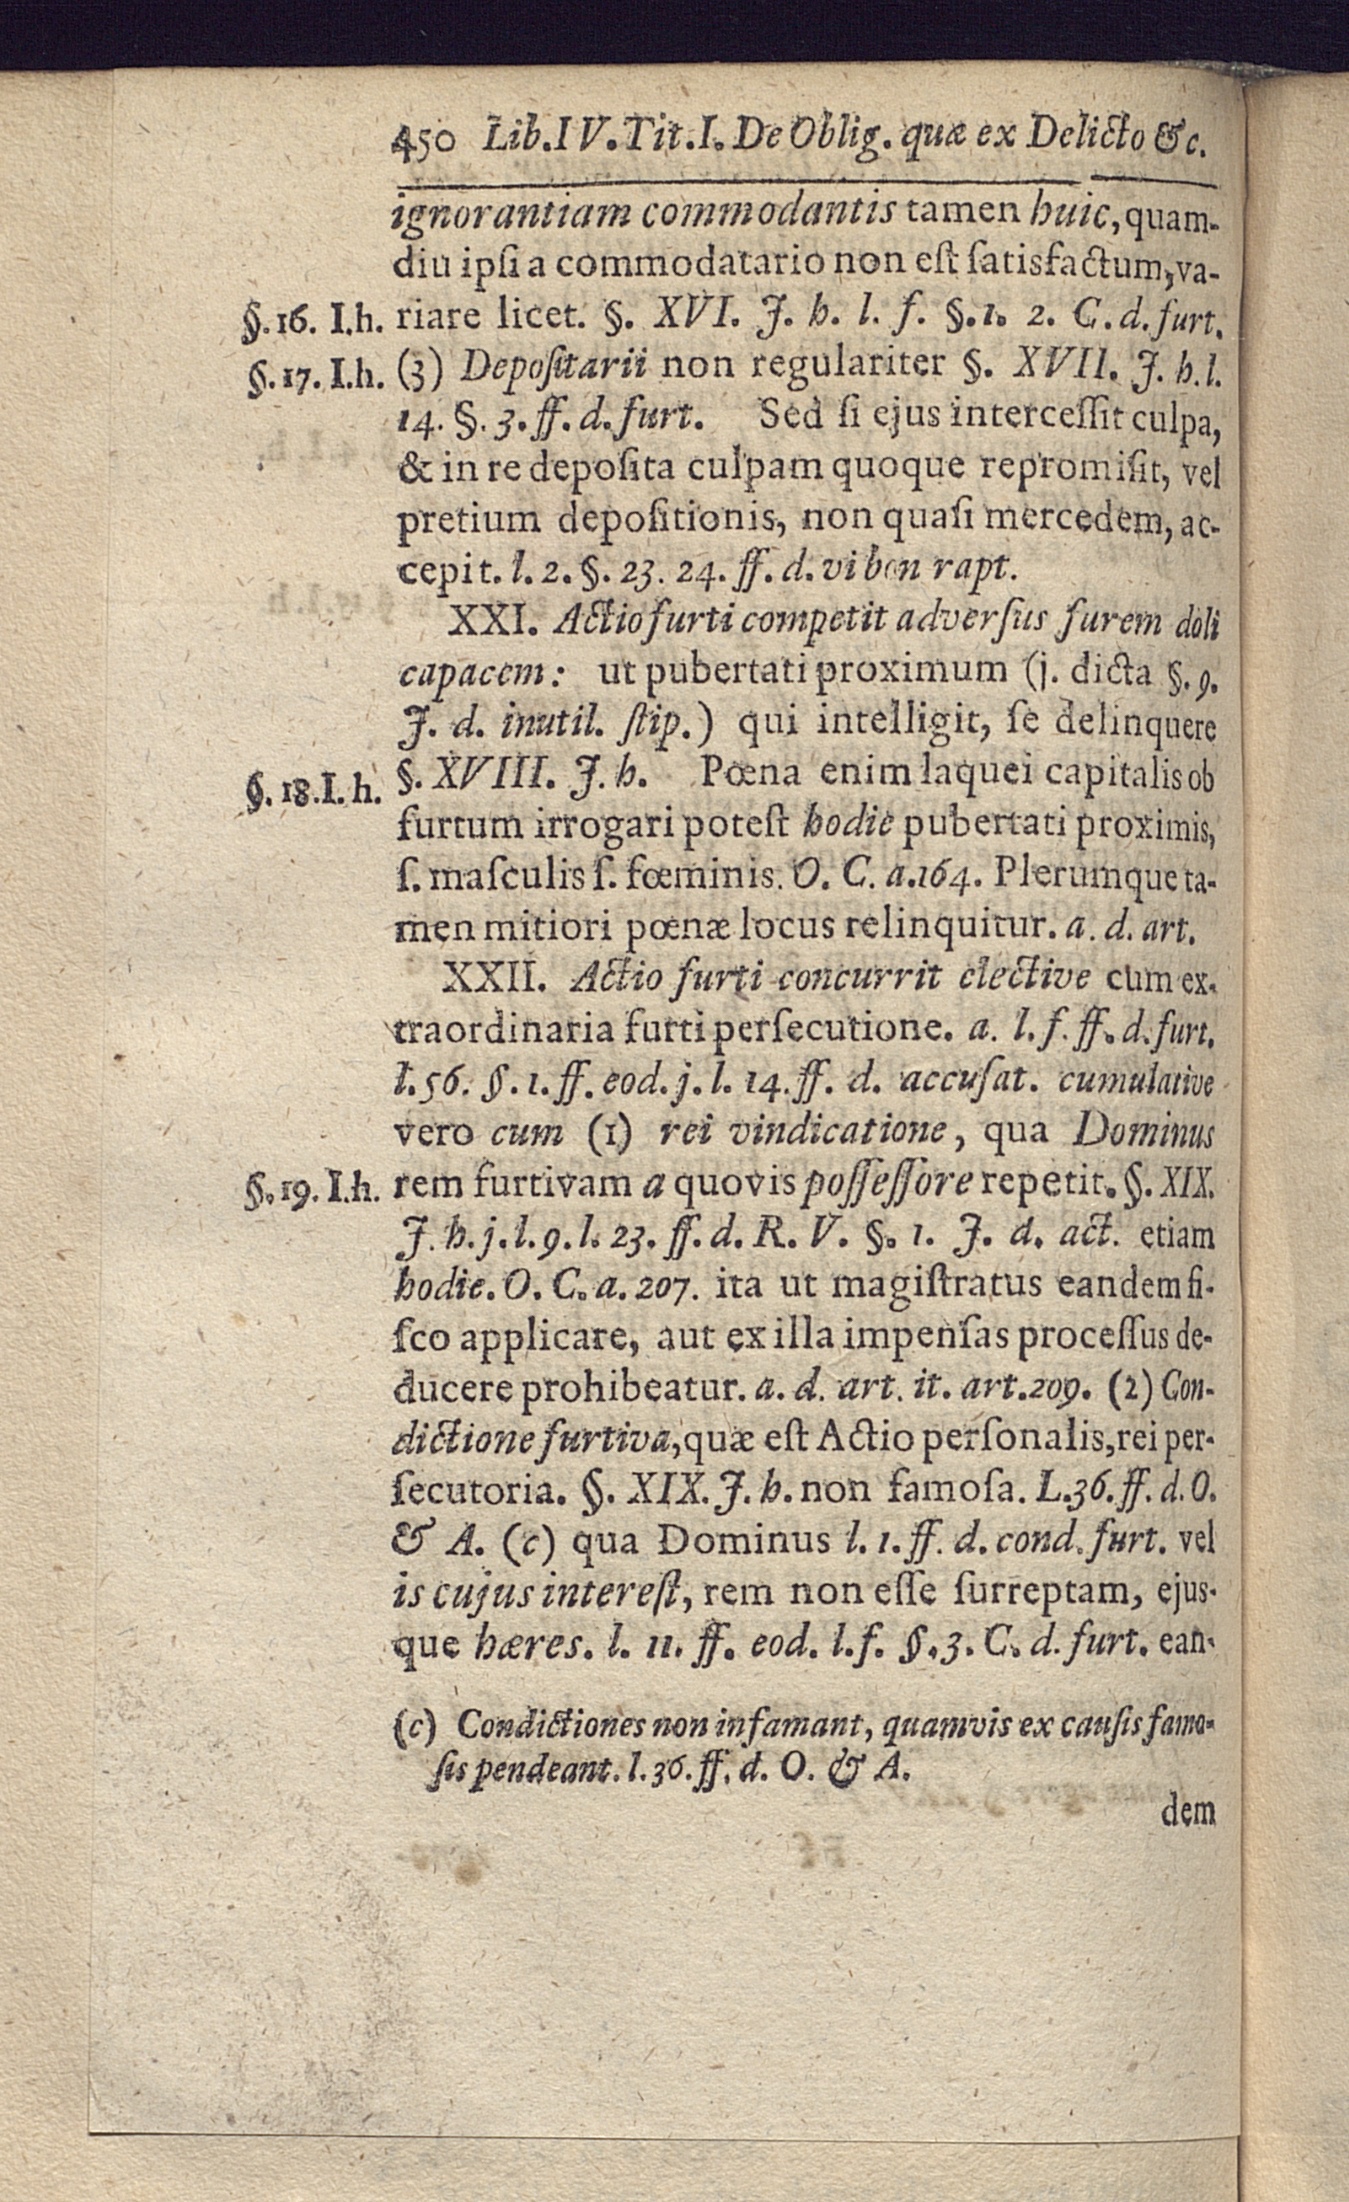 450 Lib.IV.Tit.I.De Oblig. quæ ex Delicto &c.
ignorantiam commodantis tamen huic, quam-
diu ipſi a commodatario non eſt ſatisfactum, va-
§.16. I.h. riare licet. §. XVI. J. h. l. f. §.1. 2. C.d.furt.
§.17.I.h. (3) Depoſitarii non regulariter §. XVII. J. h.l.
14. §. 3. ff. d. furt. Sed ſi ejus interceſſit culpa,
& in re depoſita culpam quoque repromiſit, vel
pretium depoſitionis, non quaſi mercedem, ac-
cepit. l. 2. §. 23. 24. ff. d. vi bon rapt.
XXI. Actio furti competit adverſus furem doli
capacem: ut pubertati proximum (j. dicta §. 9.
J. d. inutil. ſtip.) qui intelligit, ſe delinquere
§.18.I.h. §. XVIII. J. h. Pœna enim laquei capitalis ob
furtum irrogari poteſt hodie pubertati proximis,
ſ. maſculis ſ. fœminis. O. C. a.164. Plerumque ta-
men mitiori pœnæ locus relinquitur. a. d. art.
XXII. Actio furti concurrit elective cum ex-
traordinaria furti perſecutione. a. l. f. ff. d. furt.
l.56. §. 1. ff. eod. j. l. 14. ff. d. accuſat. cumulative
vero cum (1) rei vindicatione, qua Dominus
§.19. I.h. rem furtivam a quovis poſſeſſore repetit. §. XIX.
J. h. j. l. 9. l. 23. ff. d. R. V. §. 1. J. d. act. etiam
hodie. O. C. a. 207. ita ut magiſtratus eandem fi-
ſco applicare, aut ex illa impenſas proceſſus de-
ducere prohibeatur. a. d. art. it. art.209. (2) Con-
dictione furtiva, quæ eſt Actio perſonalis, rei per-
ſecutoria. §. XIX. J. h. non famoſa. L.36. ff. d. O.
& A. (c) qua Dominus l. 1. ff. d. cond. furt. vel
is cujus intereſt, rem non eſſe ſurreptam, ejus-
que hæres. l. 11. ff. eod. l.f. §.3. C. d. furt. ean-
(c) Condictiones non infamant, quamvis ex cauſis famo-
ſis pendeant. l. 36. ff. d. O. & A.
dem